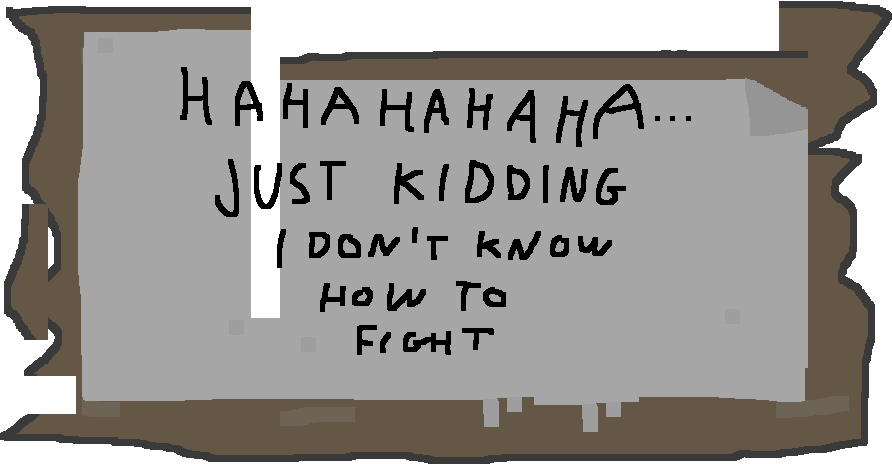 HAHAHAHAHA...
JUST KIDDING
I DON'T KNOW
HOW TO
FIGHT